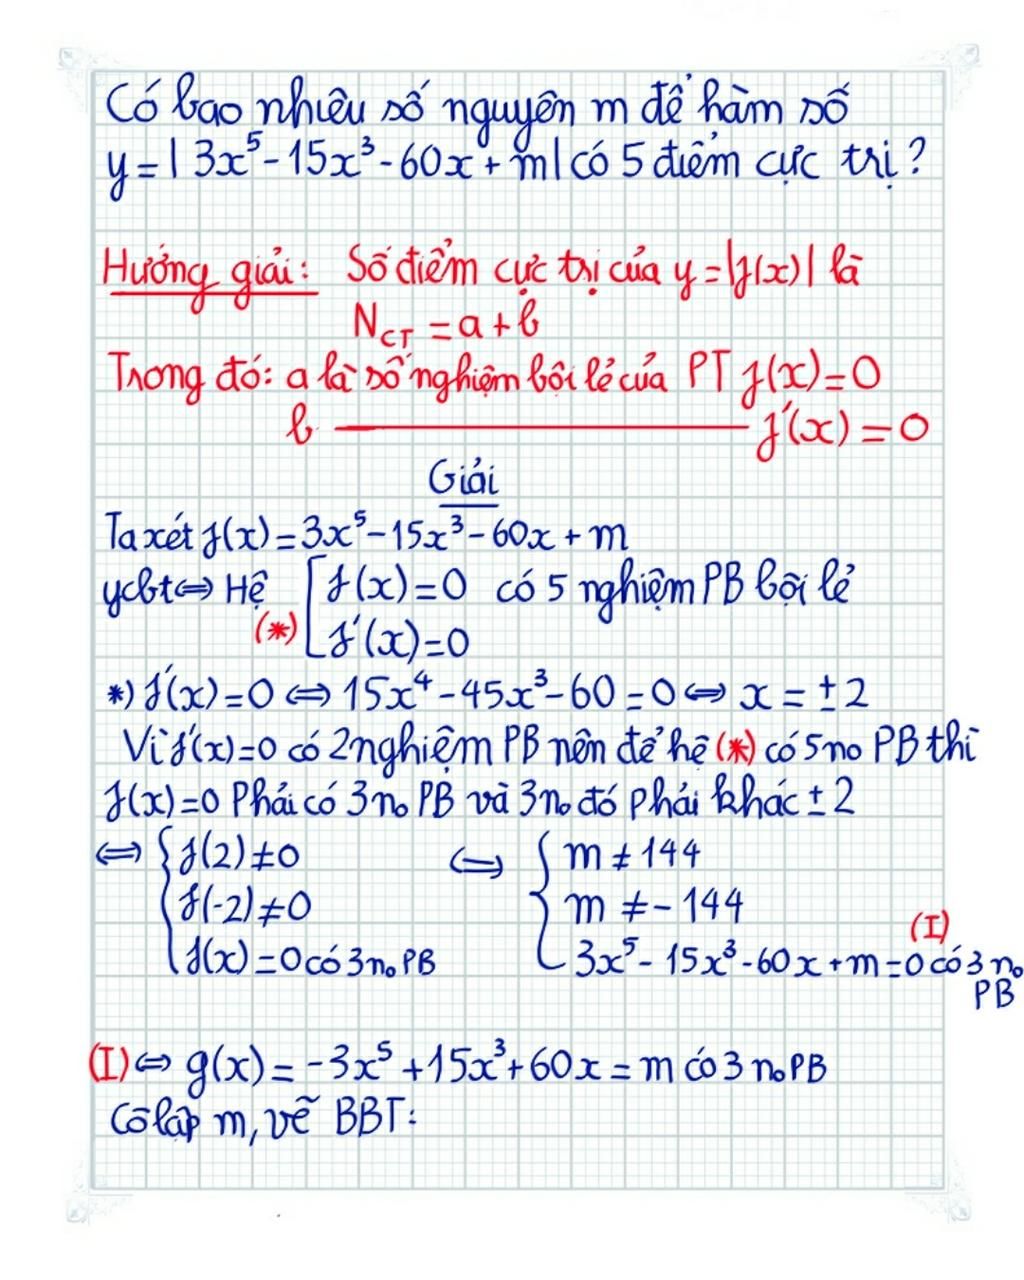 Có bao nhiêu số nguyên m để hàm số
y = | 3x⁵ - 15x³ - 60x + m | có 5 điểm cực trị ?
Hướng giải : Số điểm cực trị của y = |f(x)| là
N_CT = a + b
Trong đó: a là số nghiệm bội lẻ của PT f(x) = 0
b ———————— f'(x) = 0
Giải
Ta xét f(x) = 3x⁵ - 15x³ - 60x + m
ycbt ⇔ Hệ [ f(x) = 0 có 5 nghiệm PB bội lẻ
(*) f'(x) = 0
*) f'(x) = 0 ⇔ 15x⁴ - 45x³ - 60 = 0 ⇔ x = ± 2
Vì f'(x) = 0 có 2 nghiệm PB nên để hệ (*) có 5 no PB thì
f(x) = 0 Phải có 3 no PB và 3 no đó phải khác ± 2
⇔ { f(2) ≠ 0 ⇔ { m ≠ 144
f(-2) ≠ 0 m ≠ - 144
f(x) = 0 có 3 no PB 3x⁵ - 15x³ - 60x + m = 0 có 3 no (I)
PB
(I) ⇔ g(x) = -3x⁵ + 15x³ + 60x = m có 3 no PB
Cô lập m, vẽ BBT :